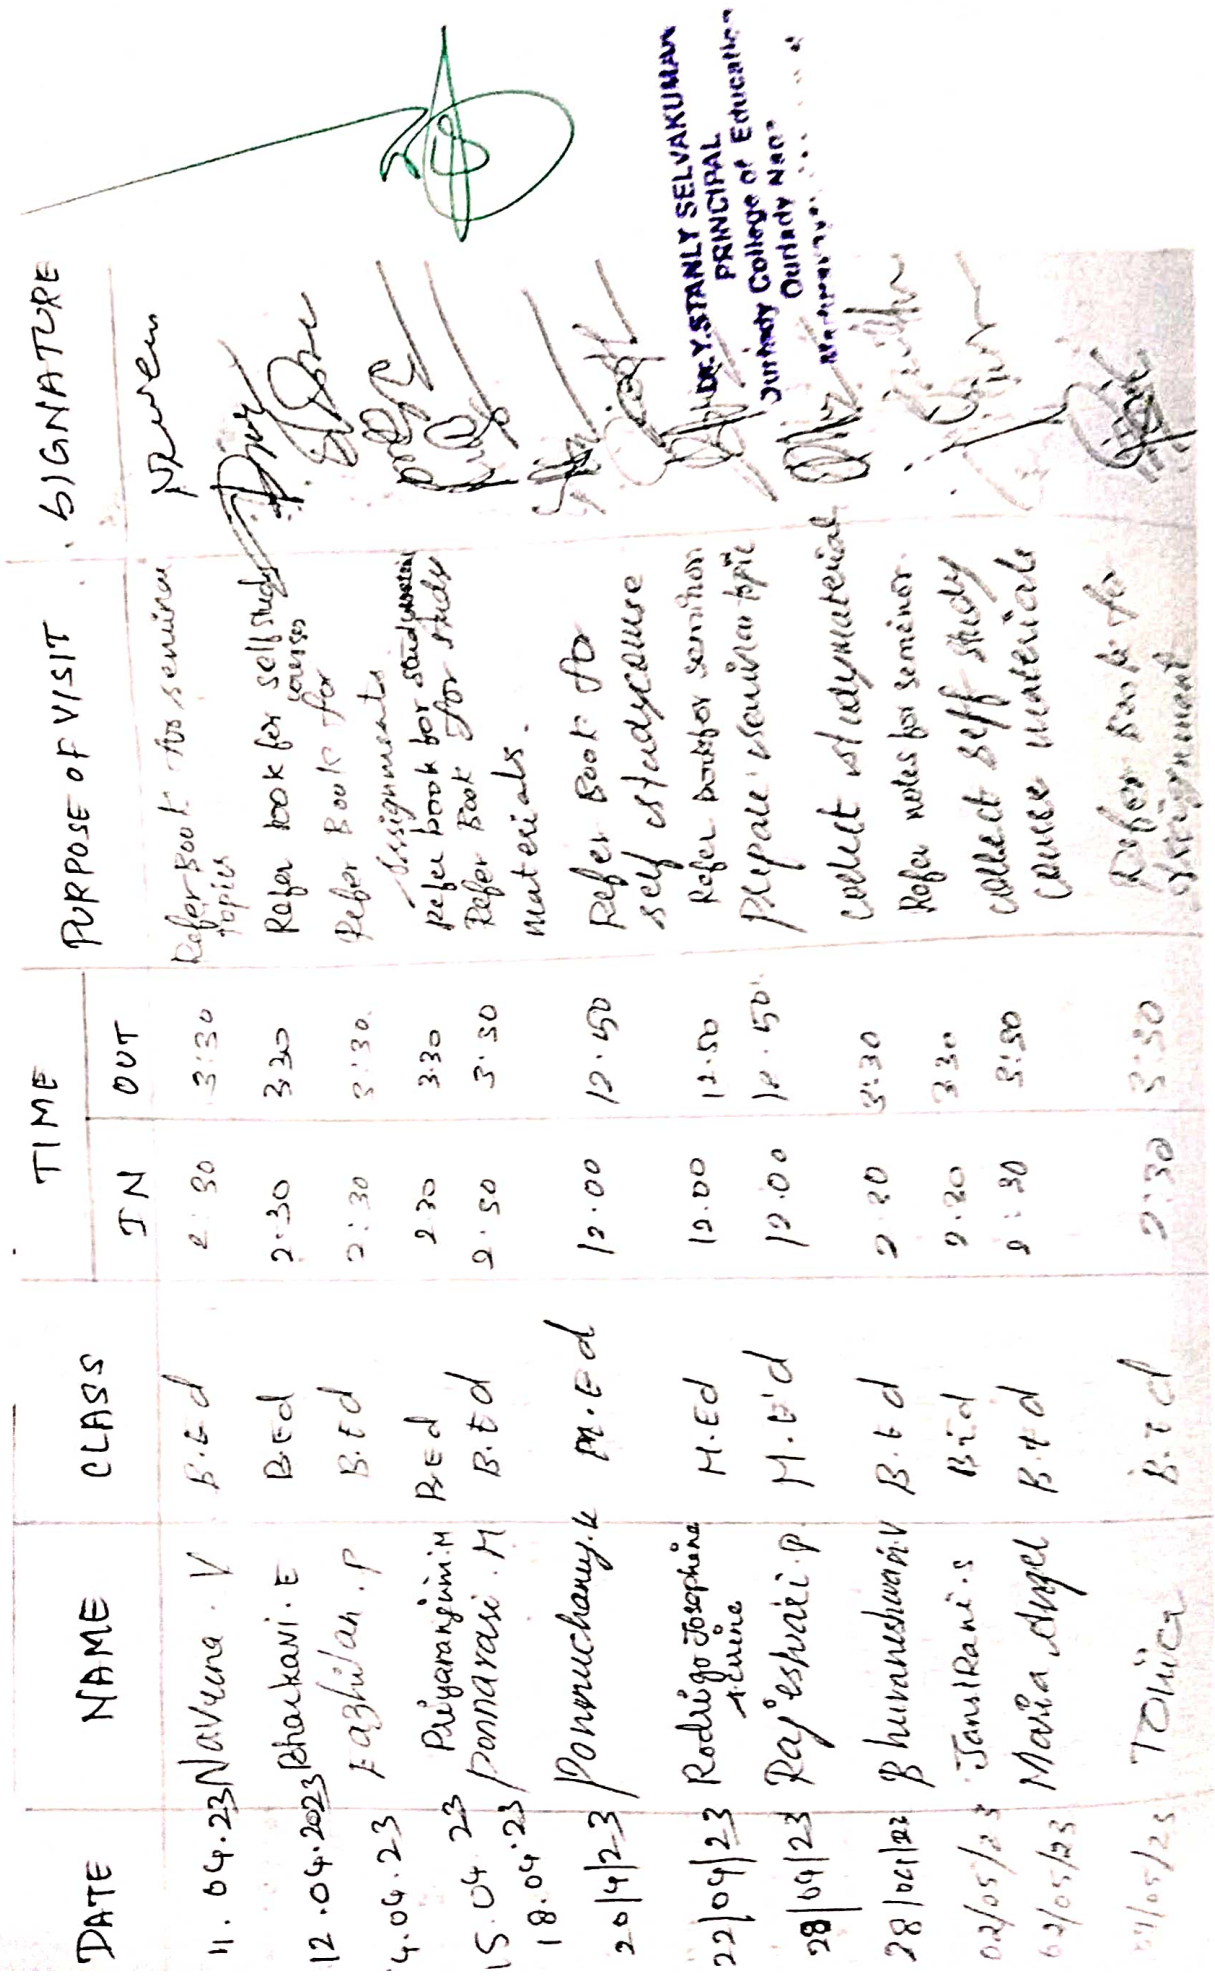 DATE NAME CLASS TIME PURPOSE OF VISIT SIGNATURE
IN OUT
11.04.23 Naveena.V B.Ed 2:30 3:30 Refer Book for seminar
topics
12.04.2023 Bhaukavi.E B.Ed 2:30 3.30 Refer book for self study
courses
4.04.23 Eazhilan.P B.Ed 2:30 3:30 Refer Book for
Assignments
15.04.23 Priyaranjini.M B.Ed 2.30 3.30 Refer book for study material
18.04.23 Ponnarasi.M B.Ed 2.30 3.30 Refer Book for study
materials.
20/4/23 Ponnuchamy.K M.Ed 12.00 12.50 Refer Book for
self study course
22/04/23 Rodrigo Josephine M.Ed 12.00 12.50 Refer book for seminor
28/04/23 Rajeshvari.P M.Ed 12.00 12.50 Prepare seminar topic
28/04/23 Bhuvaneshwari.V B.Ed 2.30 3:30 collect study material
02/05/23 JansiRani.S B.Ed 2.30 3.30 Refer notes for seminor.
02/05/23 Maria Angel B.Ed 2:30 3:30 collect self study
course materials
/05/23 B.Ed 2:30 3:30 Refer Book for
Assignment
DR.Y.STANLY SELVAKUMAR
PRINCIPAL
College of Education